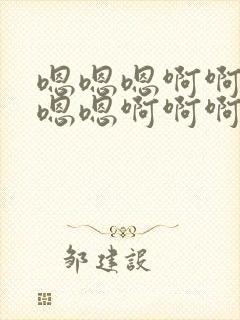 嗯嗯嗯啊啊
嗯嗯啊啊啊
邹建设